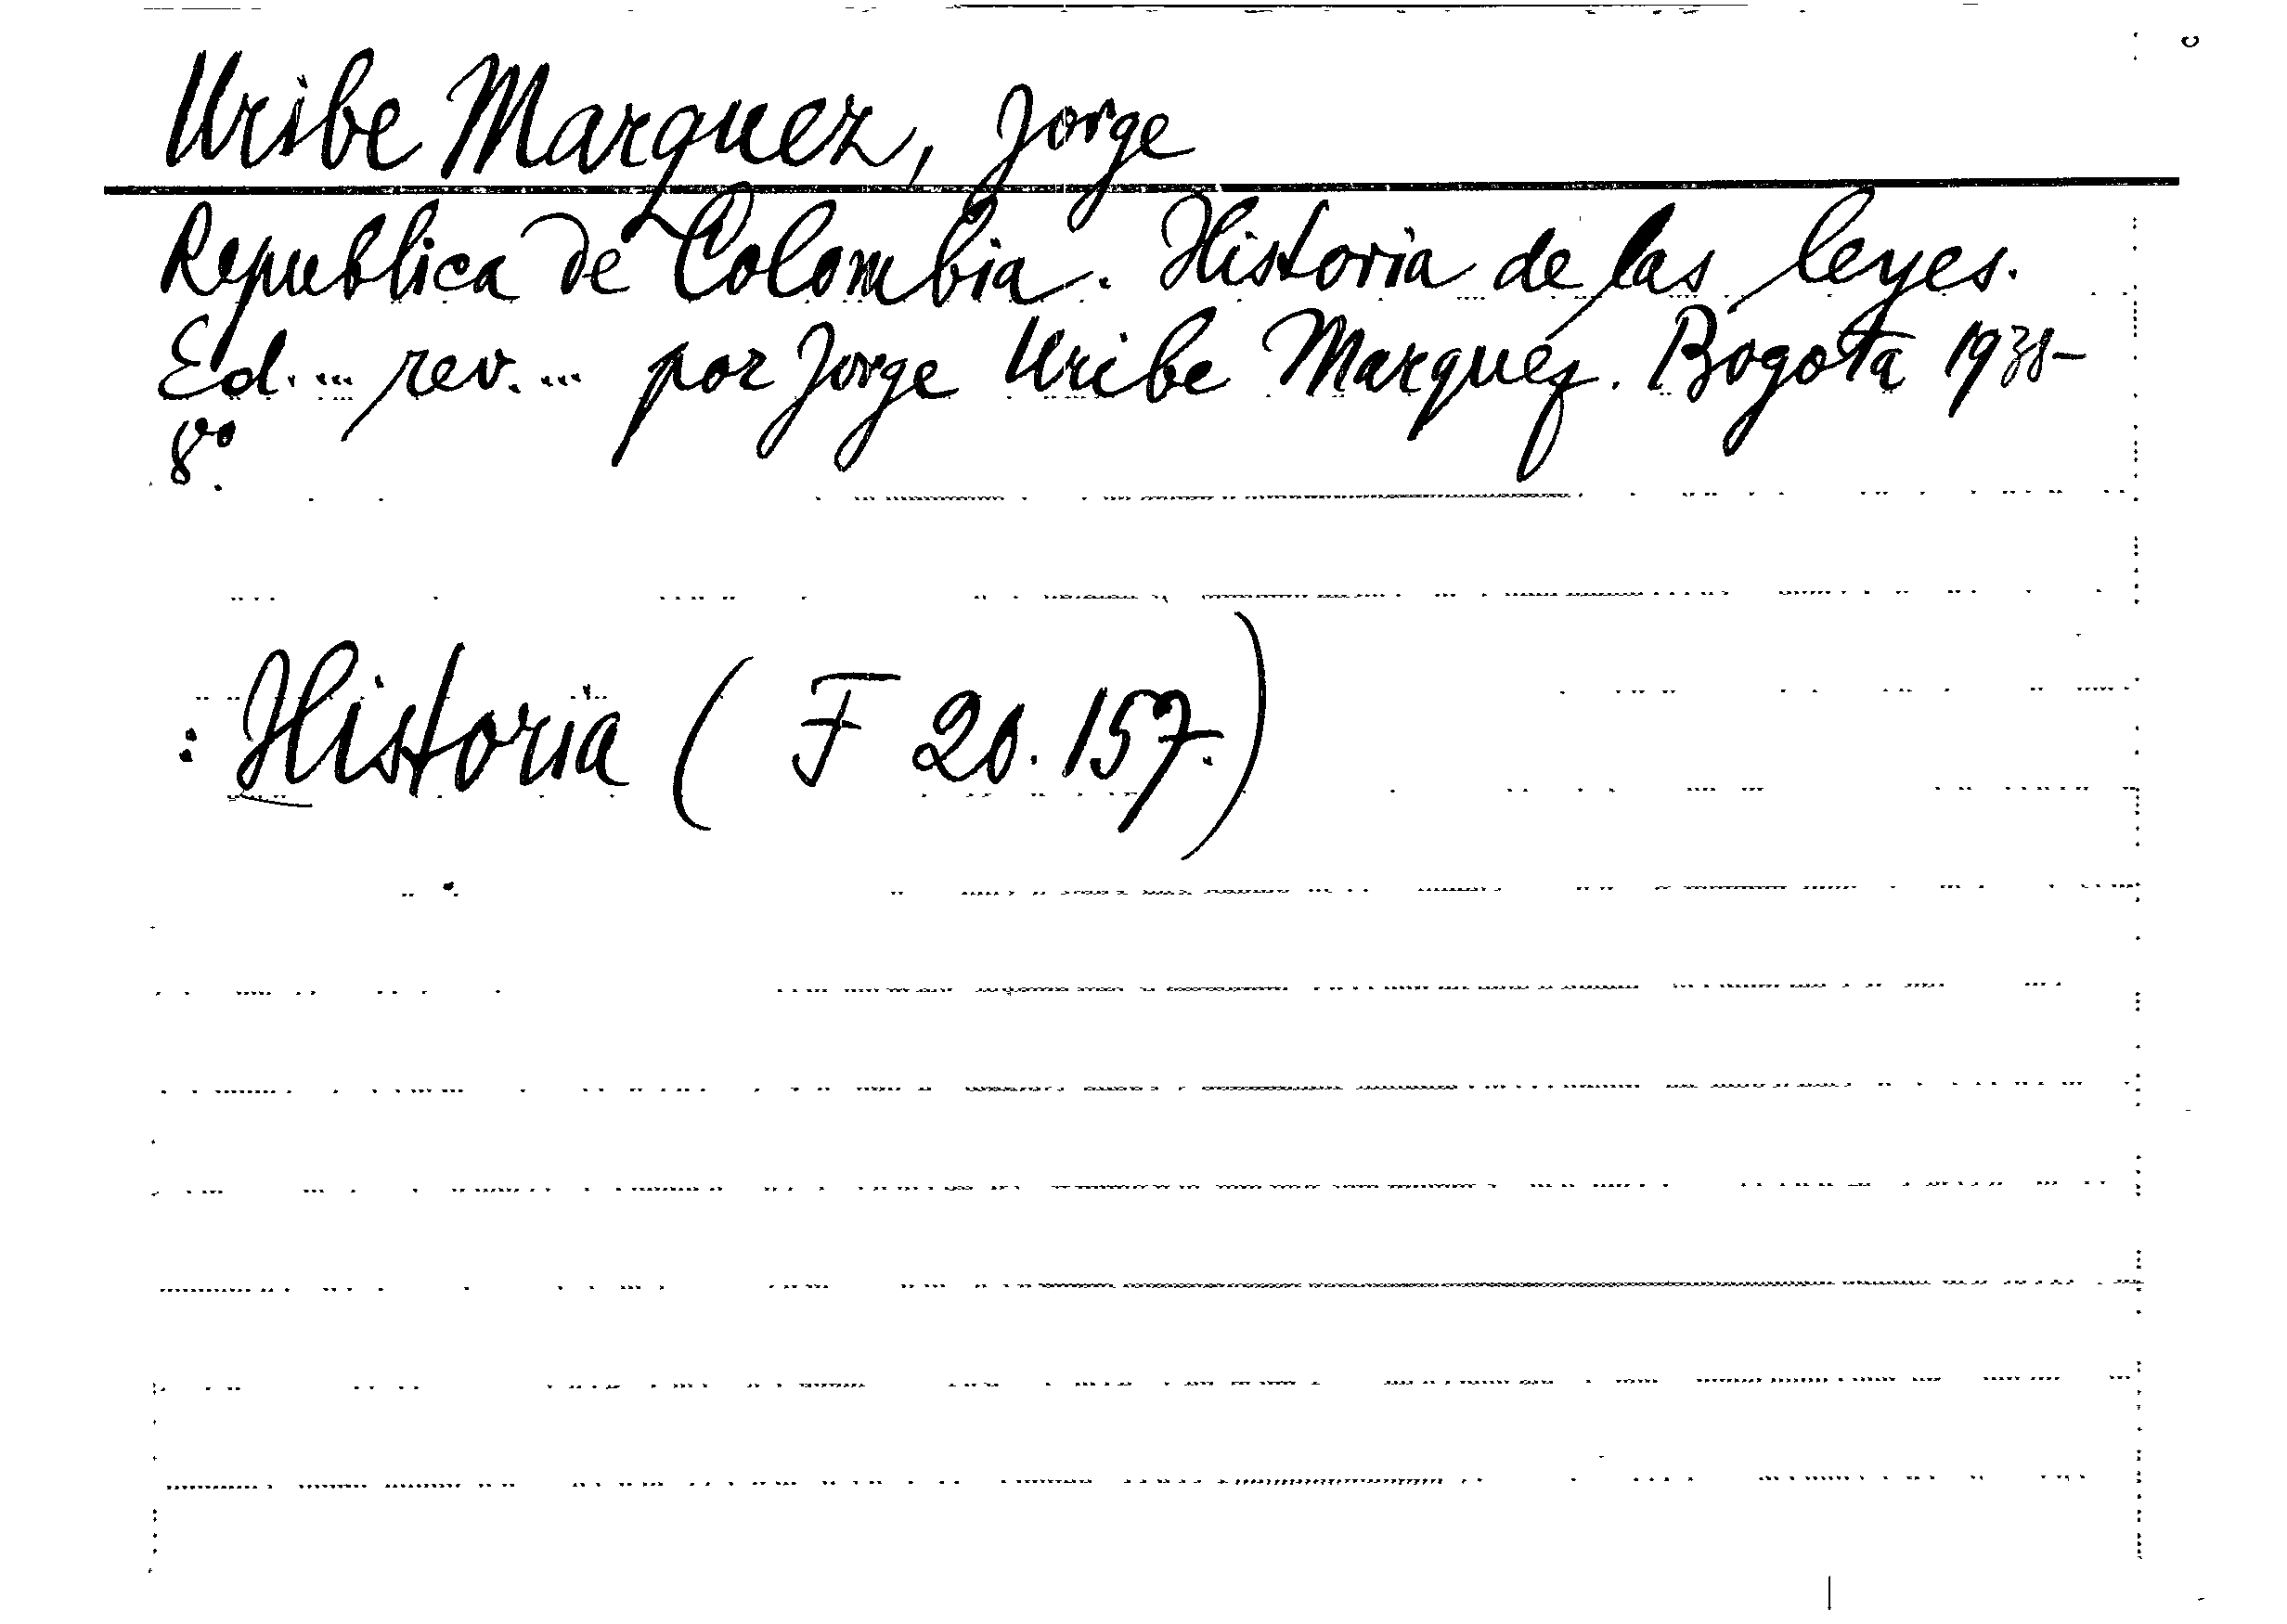 Uribe Marquez, Jorge
Republica de Colombia. Historia de las leyes.
Ed. ... rev. ... por Jorge Uribe Marquéz. Bogota 1938-
8vo.
: Historia ( F 20.157.)